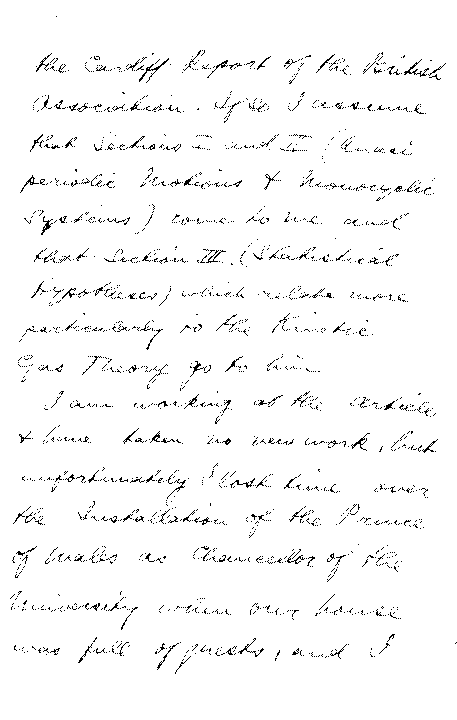 the Cardiff Report of the British
Association. If so I assume
that Sections I and II (Quasi
periodic Motions & Monocyclic
Systems) come to me and
that Section III (Statistical
Hypotheses) which relate more
particularly to the Kinetic
Gas Theory go to him
I am working at the article
& have taken no new work, but
unfortunately I lost time over
the Installation of the Prince
of Wales as Chancellor of the
University when our house
was full of guests, and I